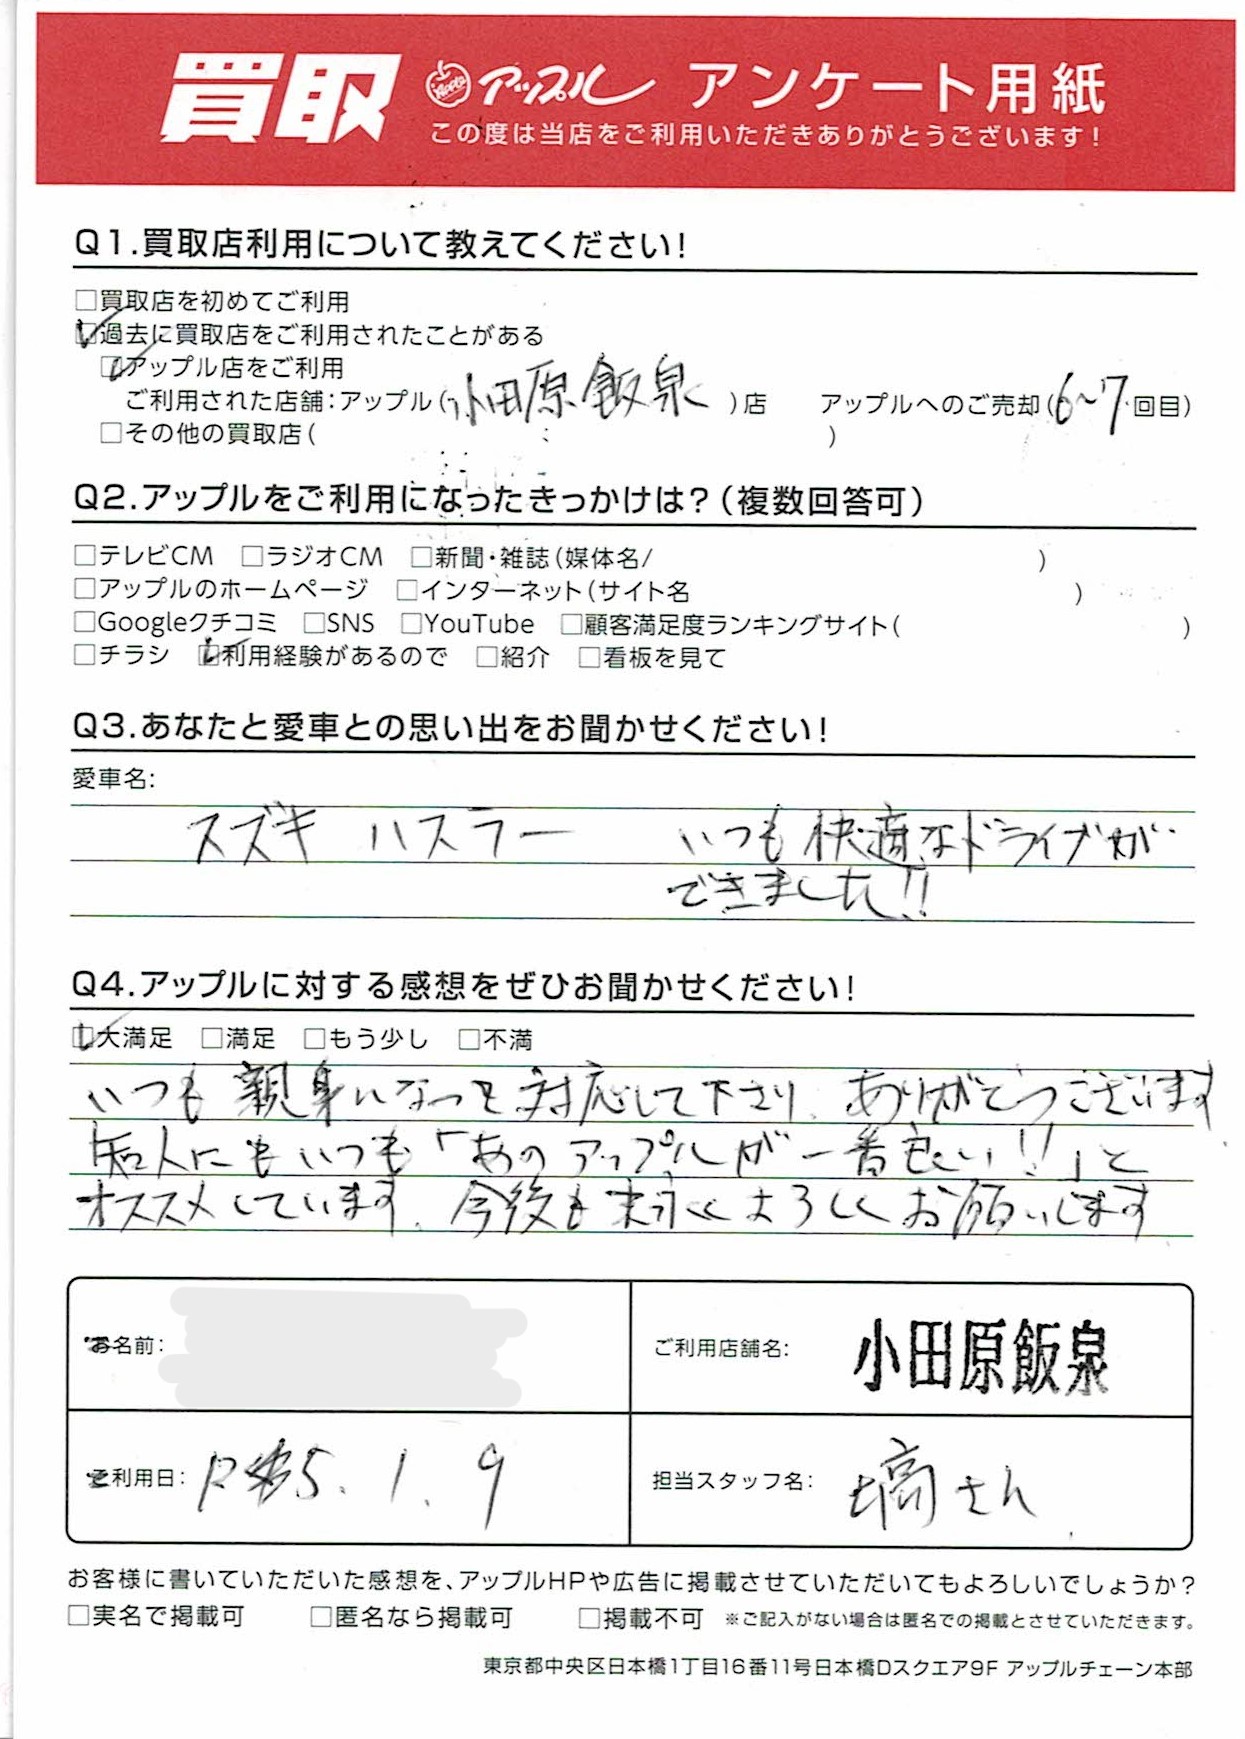 買取 Apple アップル アンケート用紙
この度は当店をご利用いただきありがとうございます!
Q1.買取店利用について教えてください!
□買取店を初めてご利用
☑過去に買取店をご利用されたことがある
☑アップル店をご利用
ご利用された店舗:アップル(小田原飯泉)店 アップルへのご売却(6~7回目)
□その他の買取店( )
Q2.アップルをご利用になったきっかけは?(複数回答可)
□テレビCM □ラジオCM □新聞・雑誌(媒体名/ )
□アップルのホームページ □インターネット(サイト名 )
□Googleクチコミ □SNS □YouTube □顧客満足度ランキングサイト( )
□チラシ ☑利用経験があるので □紹介 □看板を見て
Q3.あなたと愛車との思い出をお聞かせください!
愛車名:
スズキ ハスラー いつも快適なドライブが
できました!!
Q4.アップルに対する感想をぜひお聞かせください!
☑大満足 □満足 □もう少し □不満
いつも親身になって対応して下さり、ありがとうございます
知人にもいつも「あのアップルが一番良い!!」と
オススメしています。今後も末永くよろしくお願いします
お名前: ご利用店舗名: 小田原飯泉
ご利用日: R5.1.9 担当スタッフ名: 塙さん
お客様に書いていただいた感想を、アップルHPや広告に掲載させていただいてもよろしいでしょうか?
□実名で掲載可 □匿名なら掲載可 □掲載不可 ※ご記入がない場合は匿名での掲載とさせていただきます。
東京都中央区日本橋1丁目16番11号日本橋Dスクエア9F アップルチェーン本部